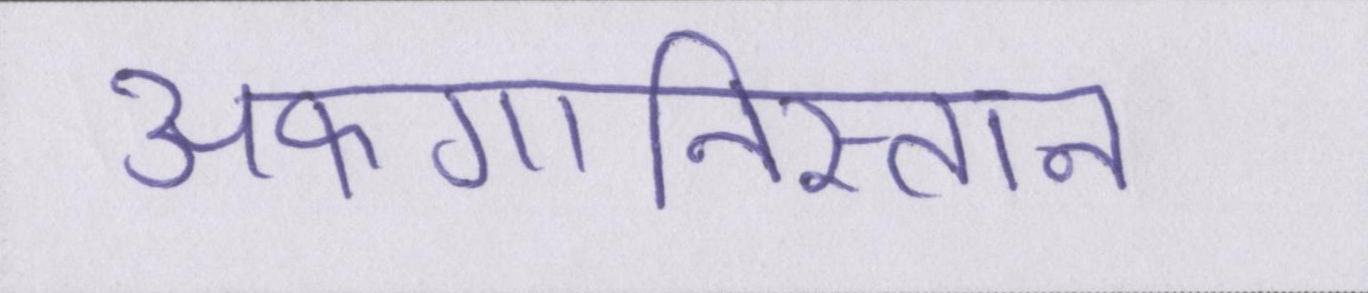 अफगानिस्तान